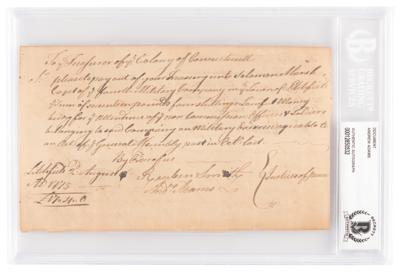 To ye Treasurer of ye Colony of Connecticutt
Sr please to pay out of your Treasury unto Solomon Marsh
Capt of ye Military Company in ye Town of Litchfield
ye sum of seventeen pounds four shillings Lawfl Money
being for ye attendance of ye non commission Officers & Soldiers
belonging to said Company on Military Exercise agreeable to
an Act of ye General Assembly past in Octr last
By Order of us
Litchfield August
AD 1775
Reuben Smith
Andw Adams
Justices of Peace
£17..4..0
BECKETT
AUTHENTICITY
GRADING
SERVICES
DOCUMENT
ANDREW ADAMS
AUTHENTIC AUTOGRAPH